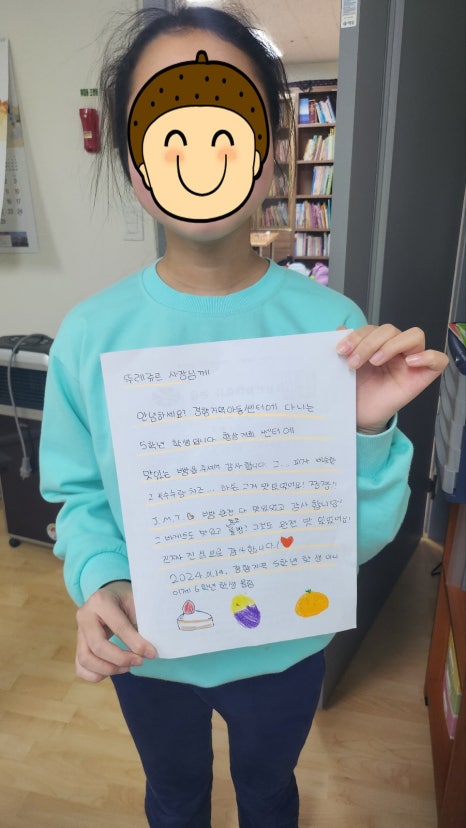 뚜레쥬르 사장님께
안녕하세요? 경험지역아동센터에 다니는
5학년 학생입니다 항상 저희 센터에
맛있는 빵을 주셔서 감사합니다. 그... 피자 비슷한
그 옥수수랑 치즈... 아동 그거 맛있었어요! 짱짱!!
J.M.T 빵 완전 다 맛있었고 감사합니당~
그 바게트도 맛있고 빵? 그것도 완전 맛있었어요!
진짜 진심으로 감사합니다!
2024.11.14. 경험지역 5학년 학생 아니
이제 6학년 학생 올림